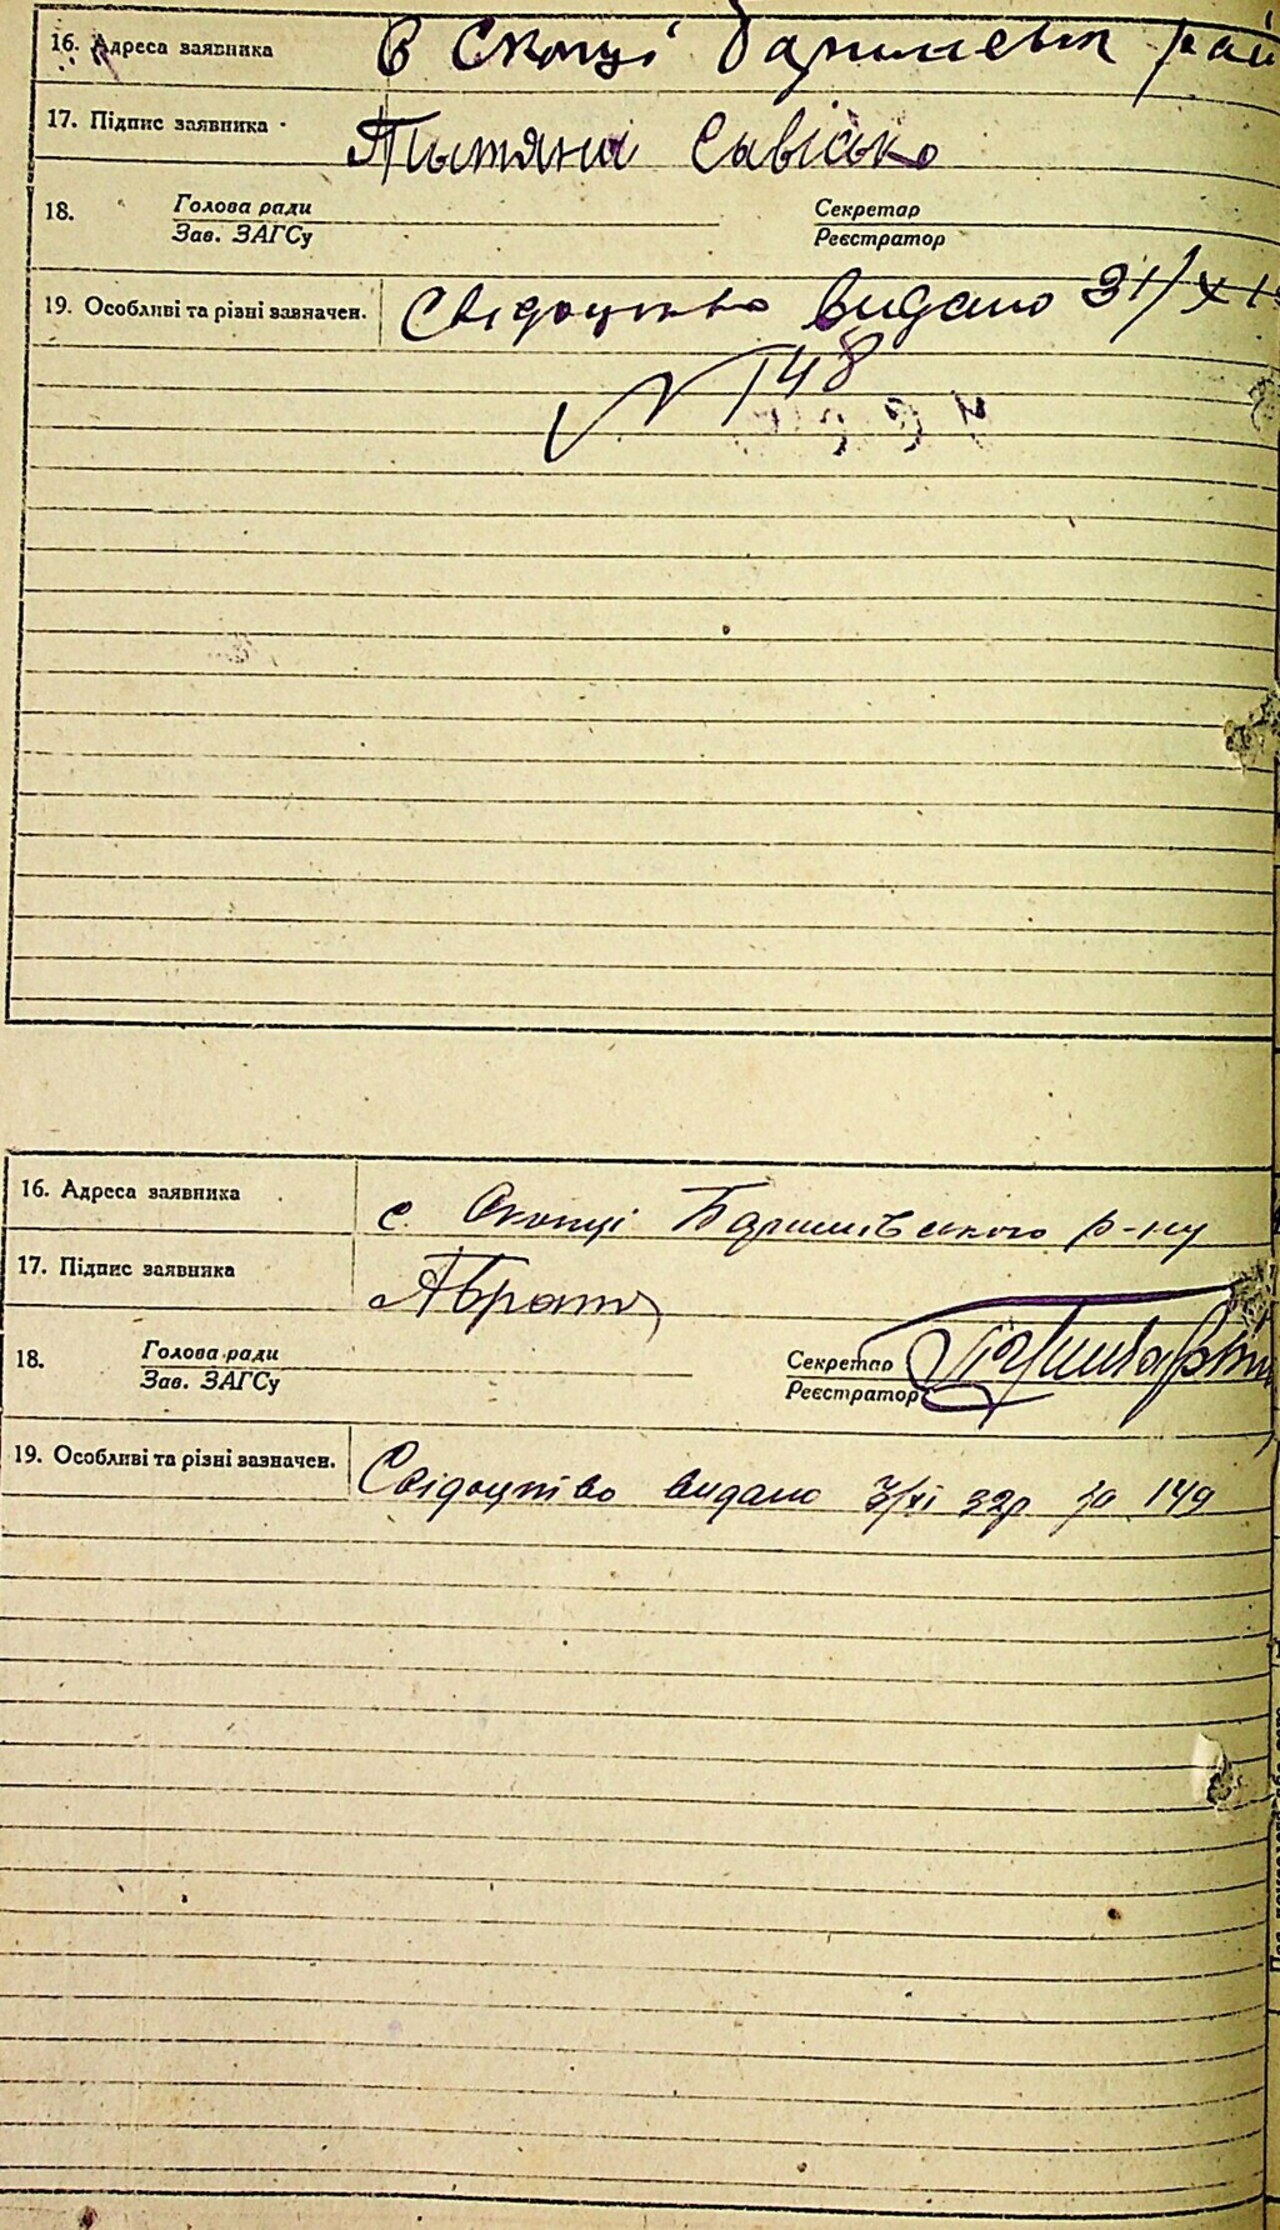 16. Адреса заявника С Скопці Баришевск рай
17. Підпис заявника Тытяна Савісько
18. Голова ради Секретар
Зав. ЗАГСу Реєстратор
19. Особливі та різні зазначен. Свідоцтво видано 31/XI
№ 148
16. Адреса заявника с. Скопці Баришівського р-ну
17. Підпис заявника
18. Голова ради Секретар
Зав. ЗАГСу Реєстратор
19. Особливі та різні зазначен. Свідоцтво видано 3/XI 32р за 149